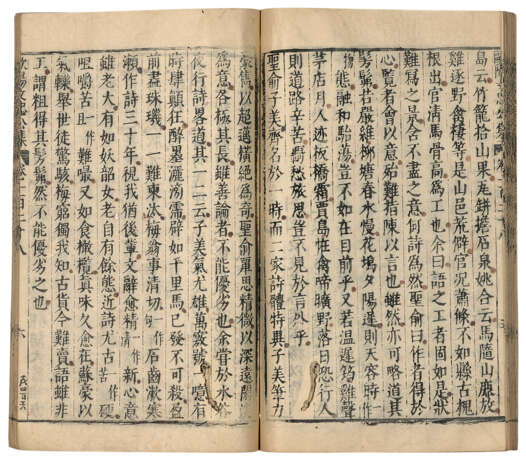 島云竹籠拾山果瓦缾擔石泉姚合云馬隨山鹿放
雞逐野禽棲等是山邑荒僻官況蕭條不如縣古槐
根出官清馬骨高為工也余曰語之工者固如是狀
難寫之景含不盡之意何詩為然聖俞曰作者得於
心覽者會以意殆難指陳以言也雖然亦可略道其
髣髴若嚴維柳塘春水慢花塢夕陽遲則天容時
態融和駘蕩豈不如在目前乎又若溫庭筠雞聲
茅店月人迹板橋霜賈島怪禽啼曠野落日恐行人
則道路辛苦羈愁旅思豈不見於言外乎
聖俞子美齊名於一時而二家詩體特異子美筆力
豪雋以超邁橫絕為奇聖俞覃思精微以深遠閒淡
為意各極其長雖善論者不能優劣也余嘗於水谷
夜行詩略道其一二云子美氣尤雄萬竅號一噫有
時肆顛狂醉墨灑滂霈譬如千里馬已發不可殺盈
前盡珠璣一一難柬汰梅翁事清切一作句石齒漱寒
瀨作詩三十年視我猶後輩文辭愈精一作清新心意
雖老大有如妖韶女老自有餘態近詩尤古一作苦硬
咀嚼苦一作且難嘬又如食橄欖真味久愈在蘇豪以
氣轢舉世徒驚駭梅窮獨我知古貨今難賣語雖非
工謂粗得其髣髴然不能優劣之也
歐陽文忠公集 卷一百二十八 六